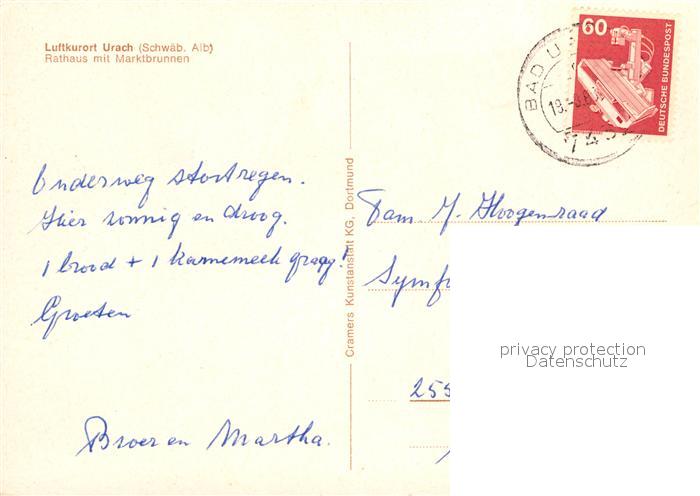 Luftkurort Urach (Schwäb. Alb)
Rathaus mit Marktbrunnen
Onderweg stortregen.
Hier zonnig en droog.
1 brood + 1 karnemelk graag!
Groeten
Broer en Martha.
Cramers Kunstanstalt KG, Dortmund
60
DEUTSCHE BUNDESPOST
BAD U
Fam M. Hoogenraad
Symf
255
privacy protection
Datenschutz